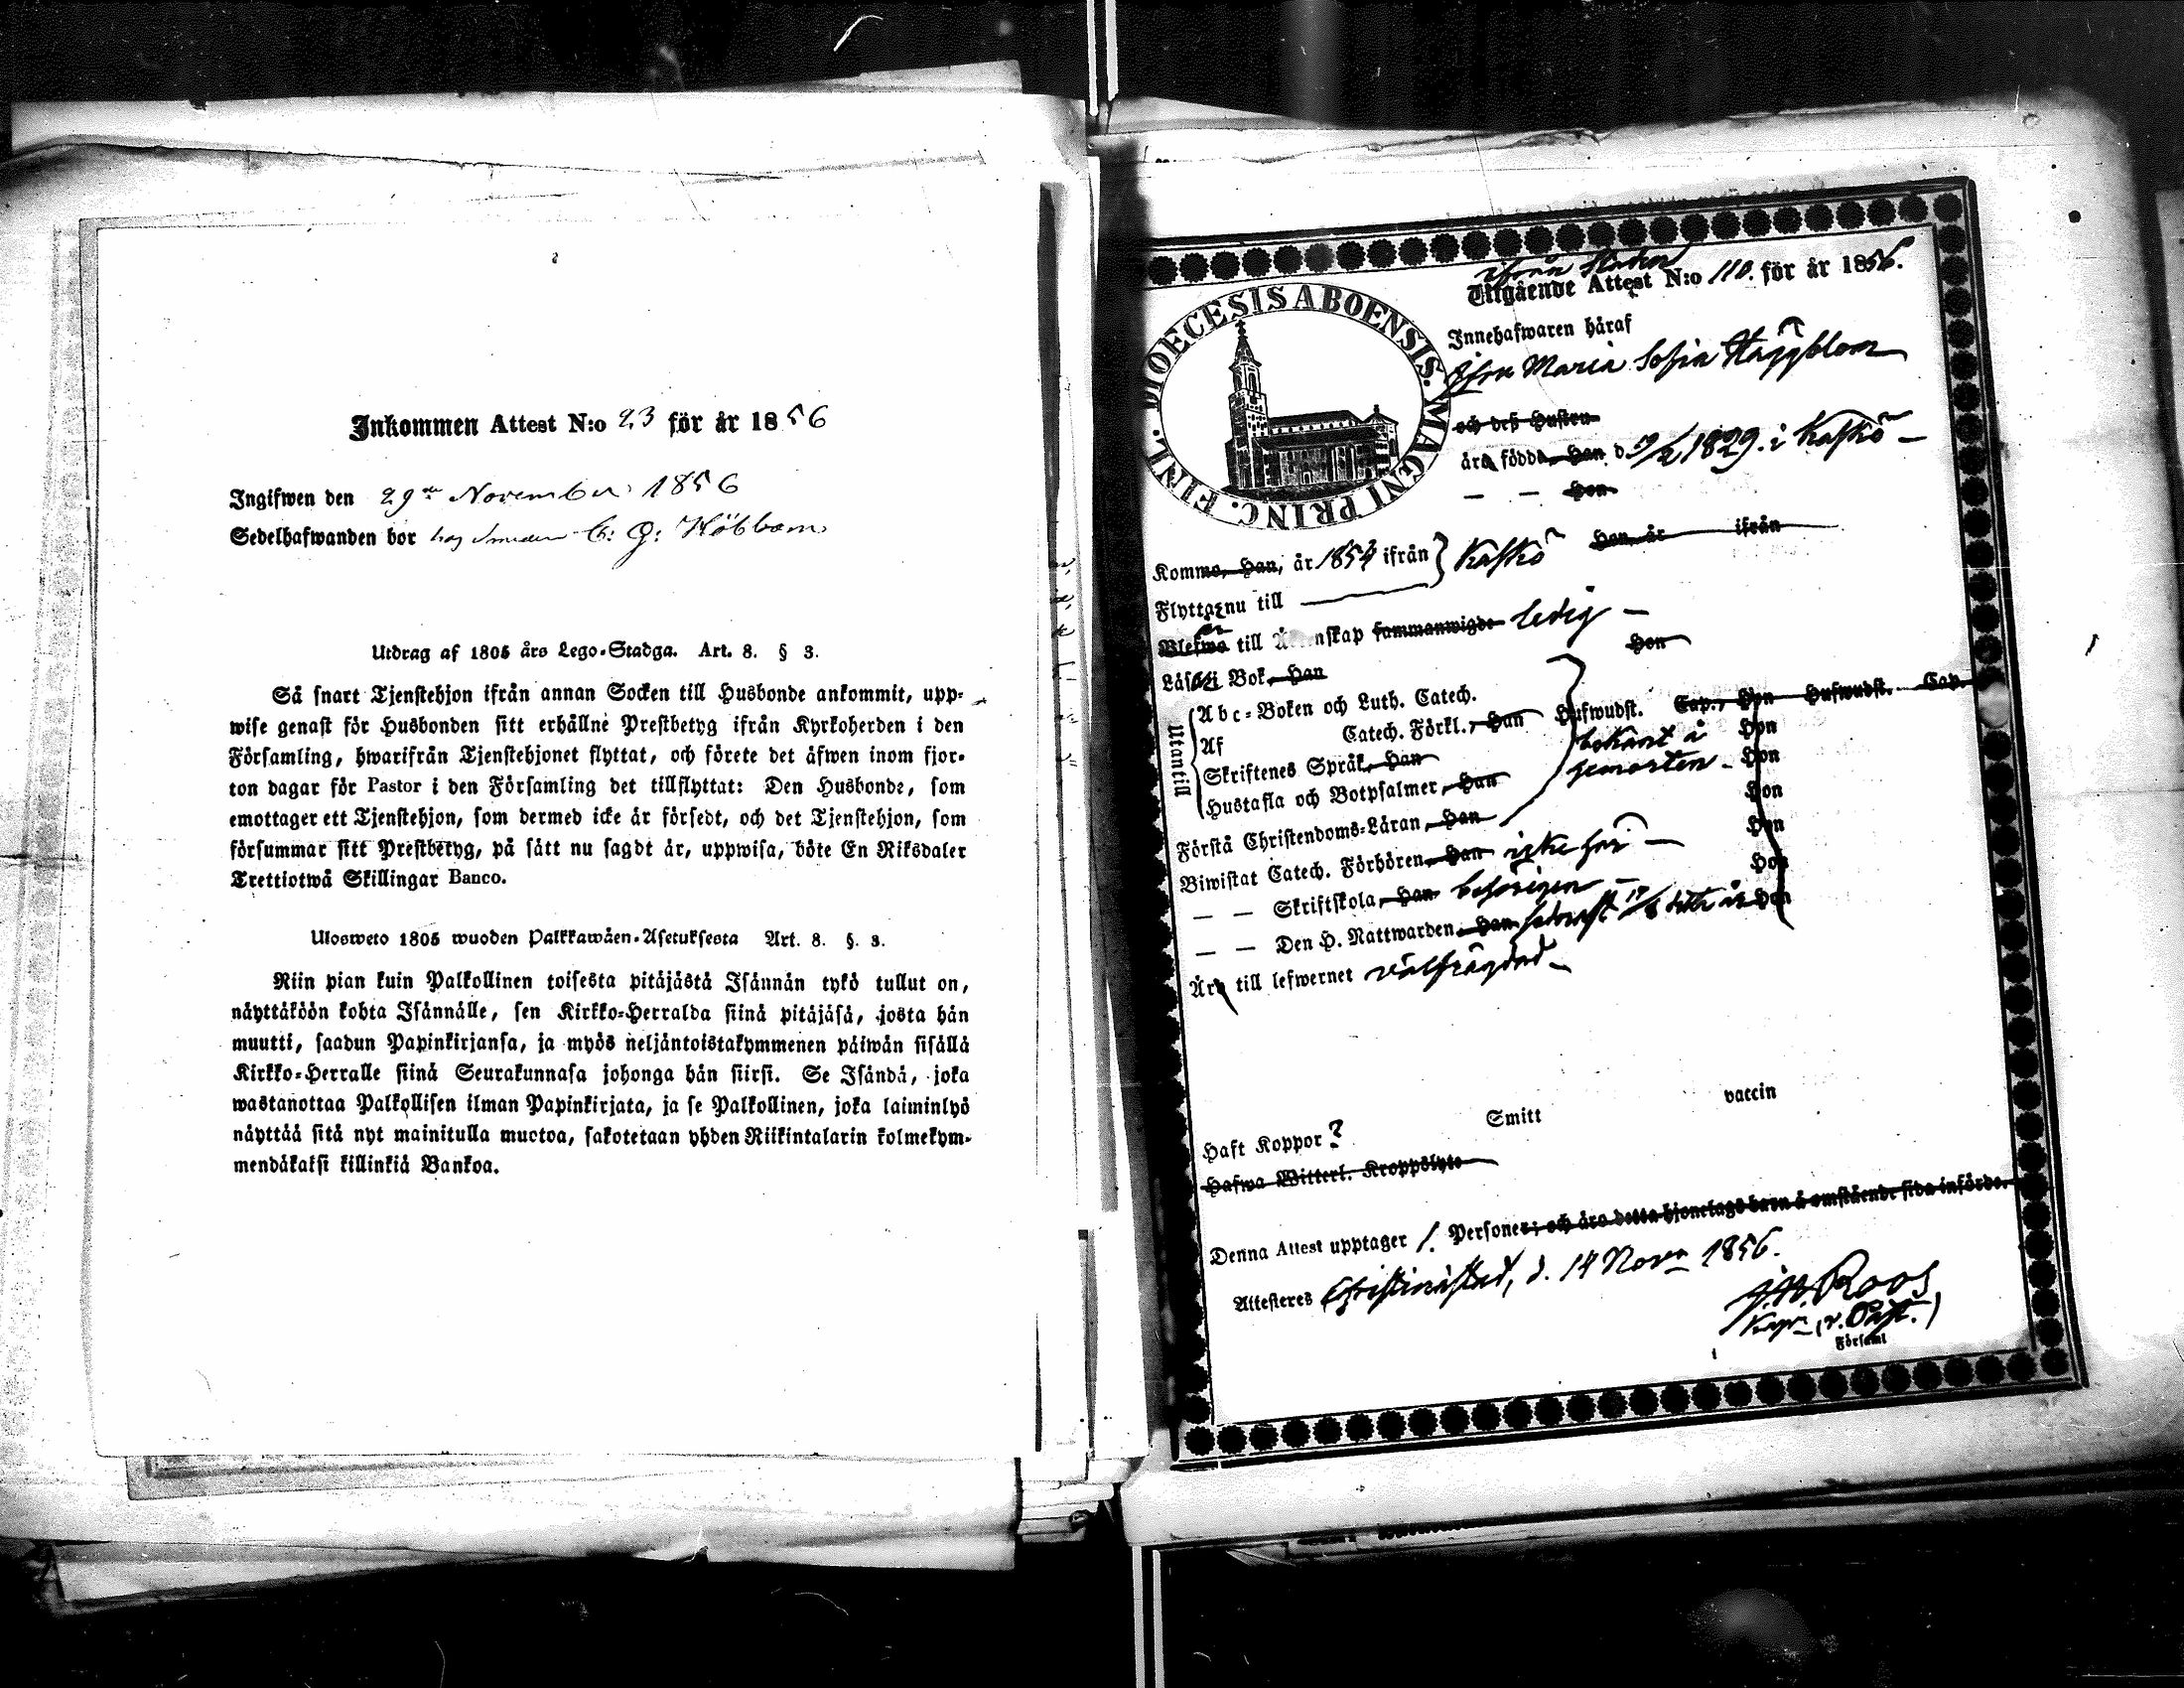 Inkommen Attest N:o 23 för år 1856
Ingifwen den 29de November 1856
Sedelhafwanden bor hos Smeden C: G:
Utdrag af 1805 års Lego-Stadga. Art. 8. § 3.
Så snart Tjenstehjon ifrån annan Socken till Husbonde ankommit, upp-
wise genast för Husbonden sitt erhållne Prestbetyg ifrån Kyrkoherden i den
Församling, hwarifrån Tjenstehjonet flyttat, och förete det äfwen inom fjor-
ton dagar för Pastor i den Församling det tillflyttat: Den Husbonde, som
emottager ett Tjenstehjon, som dermed icke är försedt, och det Tjenstehjon, som
försummar sitt Prestbetyg, på sätt nu sagdt är, uppwisa, böte En Riksdaler
Trettiotwå Skillingar Banco.
Ulosweto 1805 wuoden Palkkawäen-Asetuksesta Art. 8. §. 3.
Niin pian kuin Palkollinen toisesta pitäjästä Isännän tykö tullut on,
näyttäköön kohta Isännälle, sen Kirkko-Herralda siinä pitäjäsä, josta hän
muutti, saadun Papinkirjansa, ja myös neljäntoistakymmenen päiwän sisällä
Kirkko-Herralle siinä Seurakunnasa johonga hän siirsi. Se Isändä, joka
wastanottaa Palkollisen ilman Papinkirjata, ja se Palkollinen, joka laiminlyö
näyttää sitä nyt mainitulla muotoa, sakotetaan yhden Riikintalarin kolmekym-
mendäkaksi killinkiä Bankoa.
DIOECESIS ABOENSIS. MAGNI PRINC. FINL.
Utgående Attest N:o 110. för år 1856.
Innehafwaren häraf
Maria Sofia Häggblom
och deß Hustru
äro födde, Han d. 1829. i Kaskö —
— — Hon
Komme, Han, år 1854 ifrån } Kaskö Hon år ifrån
Flytta nu till
Blefwo till Äktenskap sammanwigde ledig —
Läsa i Bok, Han Hon
Utantill
Abc-Boken och Luth. Catech.
Af Catech. Förkl., Han Hufwudst. Cap., Hon Hufwudst. Cap.
Skriftenes Språk, Han bekant i Hon
Hustafla och Botpsalmer, Han Hon
Förstå Christendoms-Läran, Han Hon
Biwistat Catech. Förhören, Han icke här — Hon
— — Skriftskola, Han behörigen — Hon
— — Den H. Nattwarden, Han Hon
Äro till lefwernet välfrägdad —
Haft Koppor ? Smitt vaccin
Hafwa Witterl. Kroppslyte
Denna Attest upptager 1. Personer; och äro detta hjonelags barn å omstående sida införde.
Attesteres Christinestad, d. 14 Novr 1856.
Roos
Församl